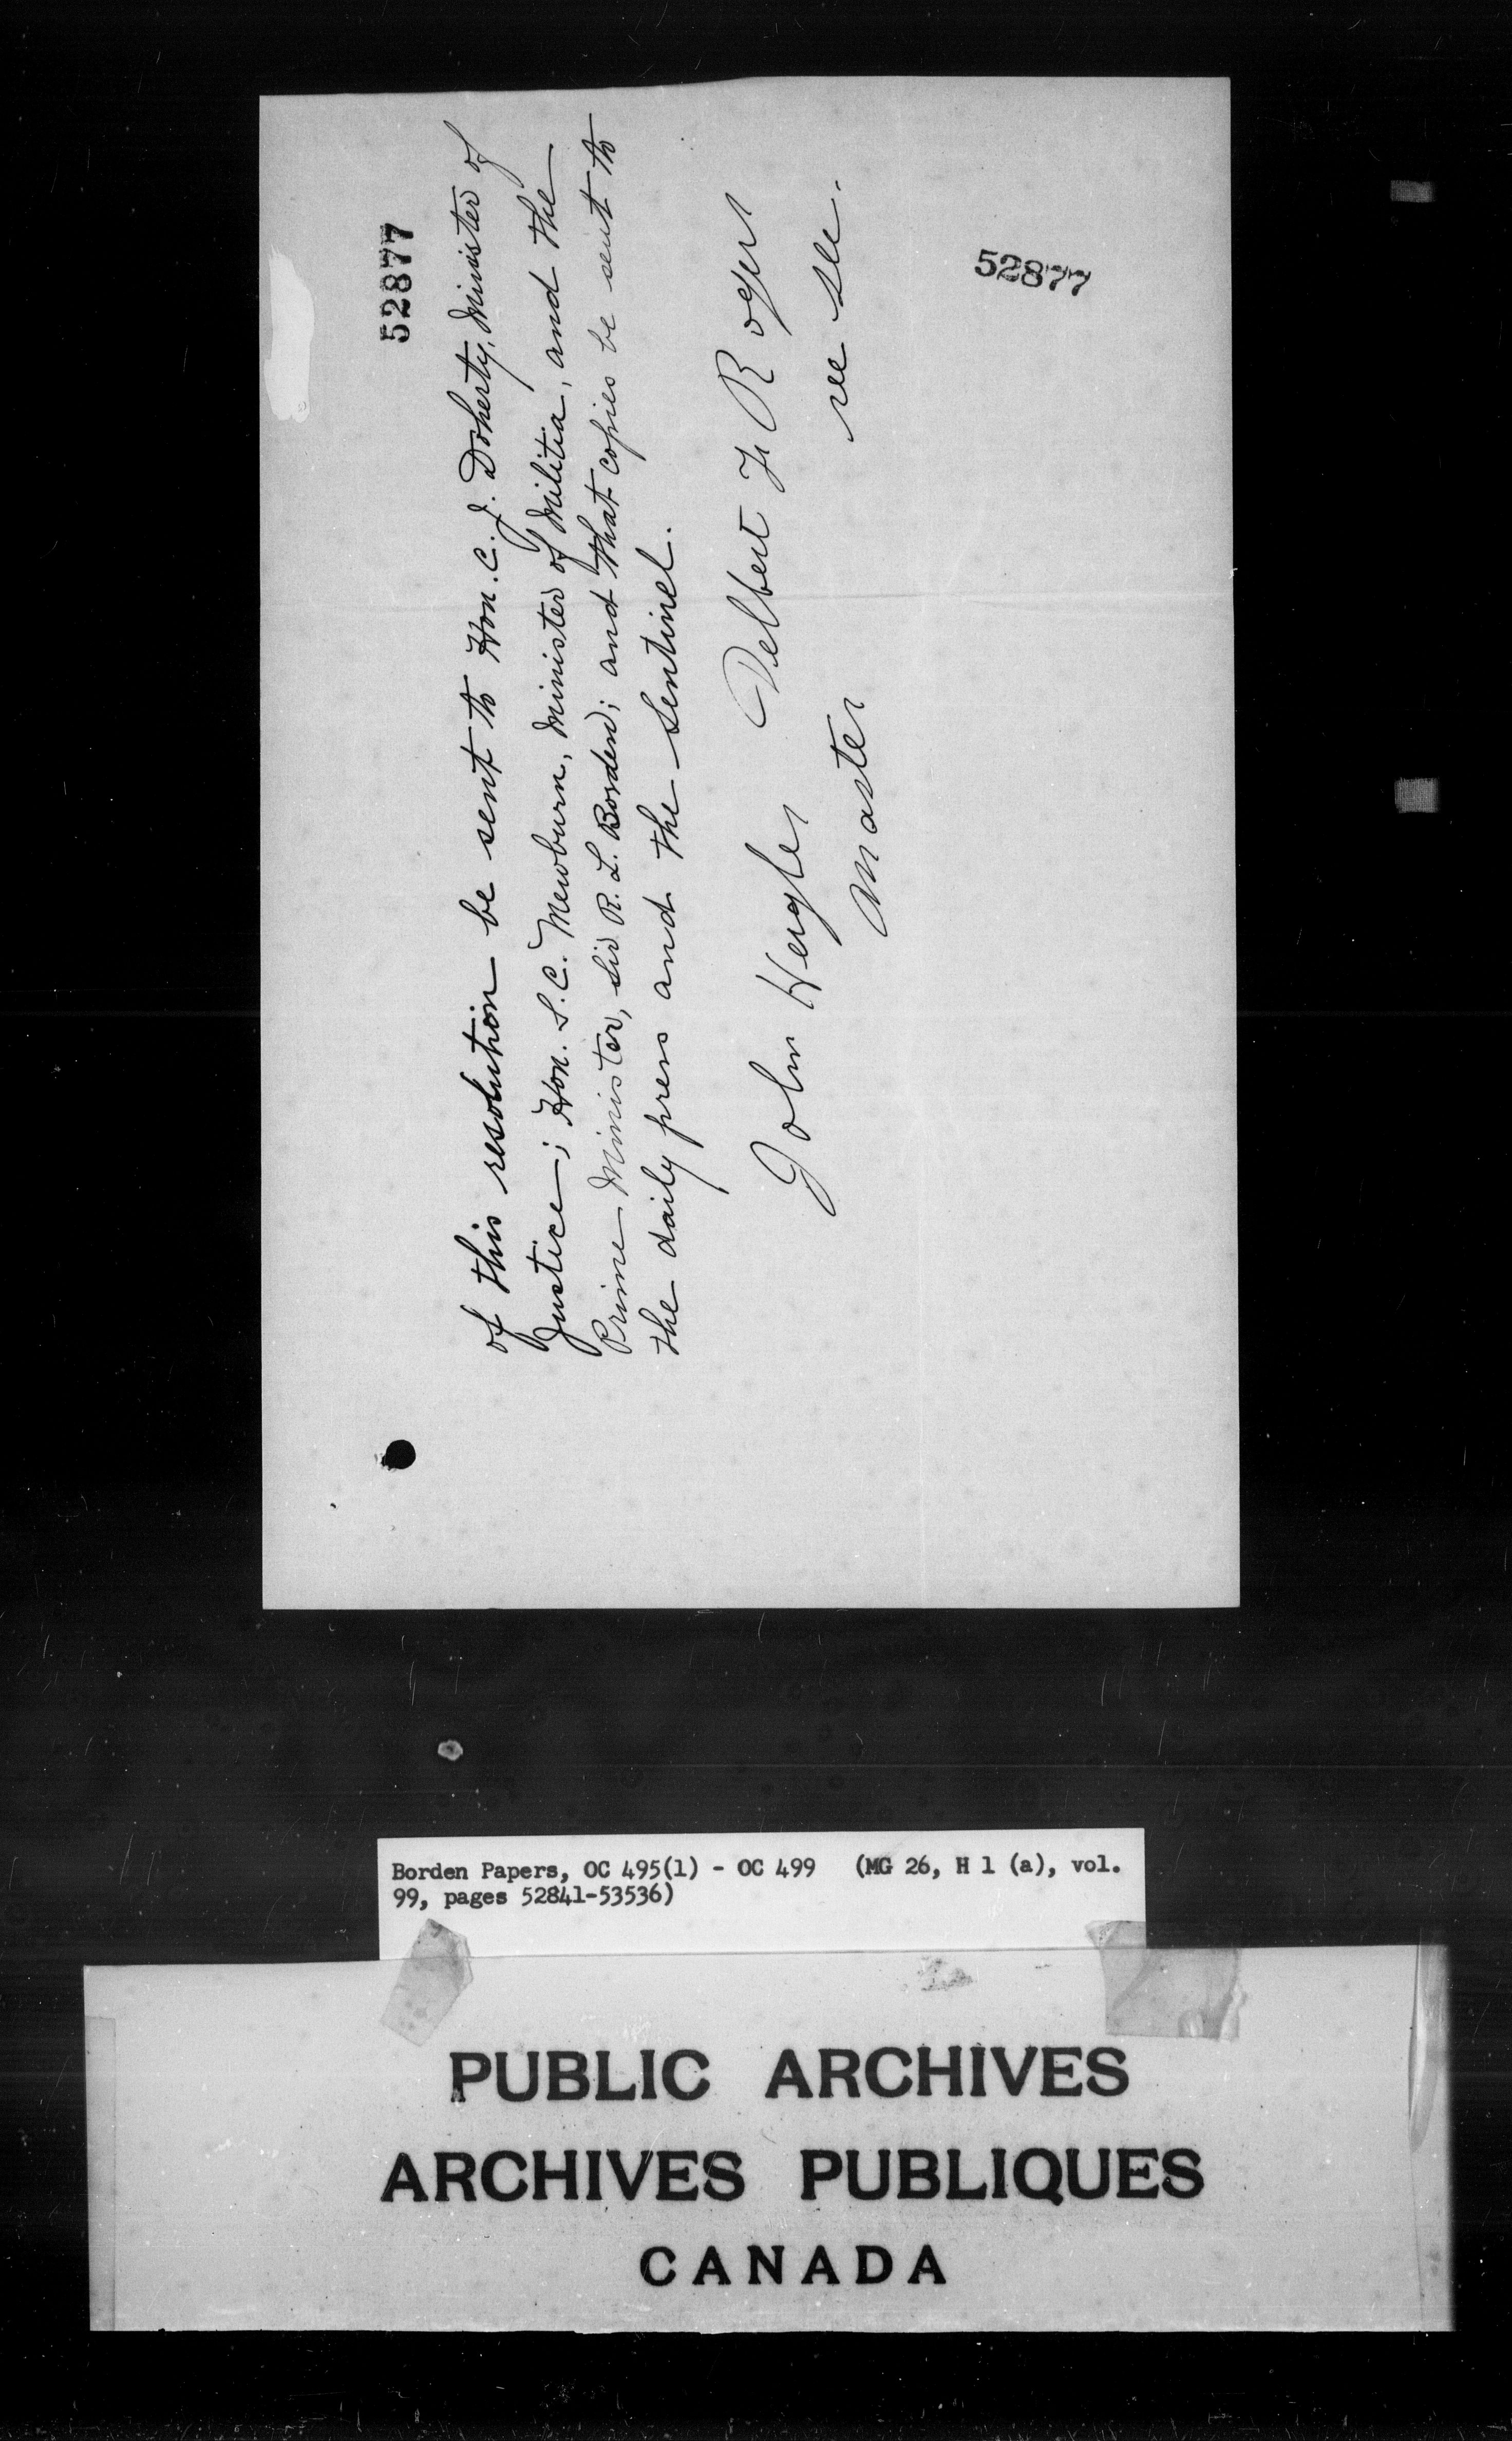 52877
of this resolution be sent to Hon. C. J. Doherty, Minister of
Justice; Hon. S. C. Mewburn, Minister of Militia, and the
Prime Minister, Sir R. L. Borden; and that copies be sent to
the daily press and the Sentinel.
John Hergler Delbert F Rogers
Master rec sec.
52877
Borden Papers, OC 495(1) - OC 499 (MG 26, H 1 (a), vol.
99, pages 52841-53536)
PUBLIC ARCHIVES
ARCHIVES PUBLIQUES
CANADA